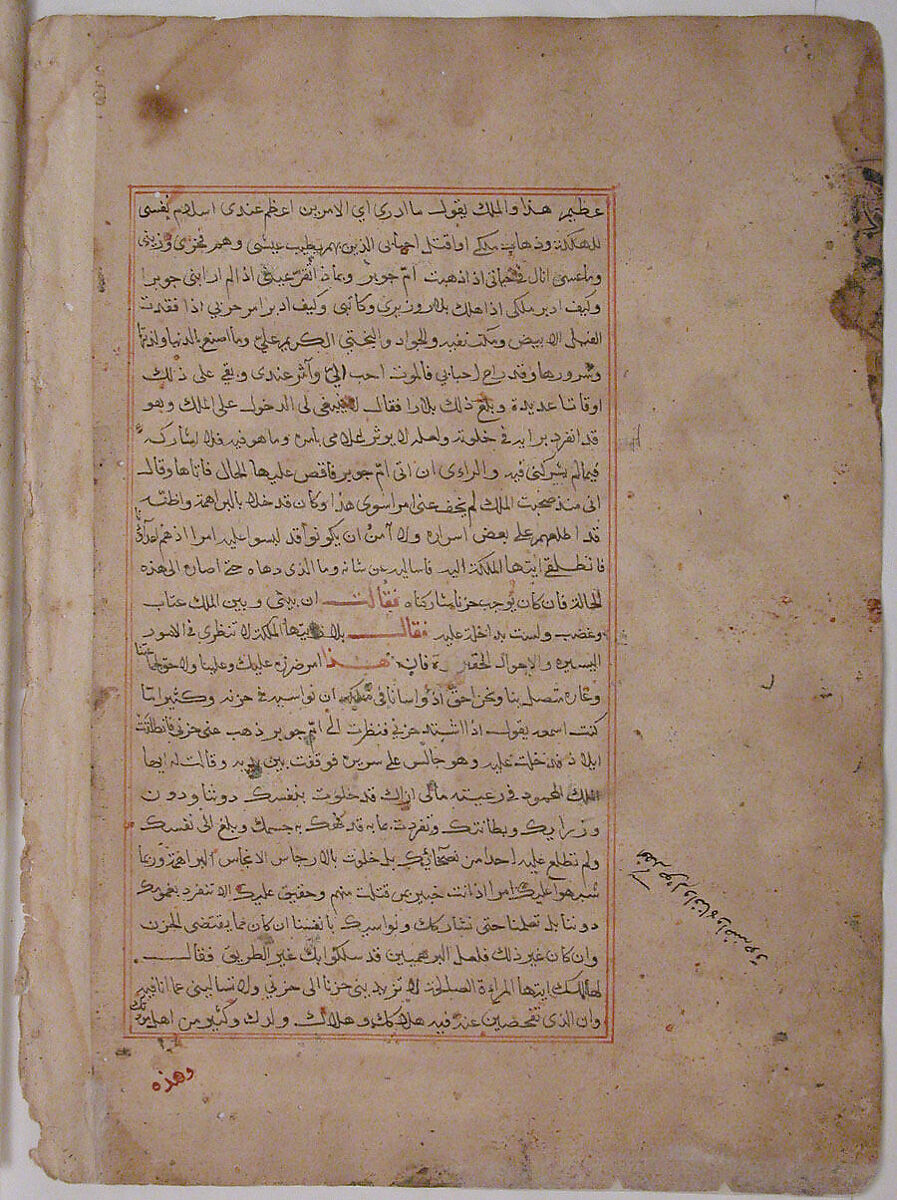 عظيم هذا والملك يقول ما ادري اي الامرين اعظم عندي اسلام نفسي
للهلكة وذهاب ملكي او اقتل احبابي الذين بهم يطيب عيشي وهم فخري وزيني
وما عسى انال في حياتي اذا ذهبت ام جوبر وبماذا تقر عيني اذا لم ار ابني جوبرا
وكيف ادبر ملكي اذا هلك بلار وزيري وكاتبي وكيف ادبر امر حربي اذا فقدت
الفيل الابيض والجواد والبختي الكريم علي وما اصنع بالدنيا ولذتها
وسرورها وقد راح احبابي فالموت احب الي وآثر عندي وبقي على ذلك
اوقاتا عديدة وبلغ ذلك بلارا فقال لا ينبغي لي الدخول على الملك وهو
قد انفرد برايه في خلوته ولعله لا يوثر اعلامي بامره وما هو فيه فلا اشاركه
فيما لم يشركني فيه والراءي ان اتى ام جوبر فاقص عليها الحال فاتاها وقال
اني منذ صحبت الملك لم يخف عني امرا سوى هذا وكان قد خلا بالبراهمة واظنه
قد اطلعهم على بعض اسراره ولا آمن ان يكونوا قد لبسوا عليه امرا اذ هم اعدآؤه
فانطلقي ايتها الملكة اليه فاساليه عن شانه وما الذي دهاه حتى اصاره الى هذه
الحالة فان كان يوجب حزنا شاركناه فقالت ان بيني وبين الملك عتاب
وغضب ولست بداخلة عليه فقال بلار ايتها الملكة لا تنظري في الامور
اليسيره والاحوال الحقيرة فان هذا امر ضرره عليك وعلينا ولاحق بنا
وعاره متصل بنا ونحن احق اذ واسانا في ملكه ان نواسيه في حزنه وكثيرا ما
كنت اسمعه يقول اذا اشتد حزني فنظرت الى ام جوبر ذهب عني حزني فانطلقت
ايلاذ فدخلت عليه وهو جالس على سريره فوقفت بين يديه وقالت له ايها
الملك المحمود في رعيته مالي اراك قد خلوت بنفسك دوننا ودون
وزرايك وبطانتك وتفردت بما به قد نهك به جسمك وبلغ الى نفسك
ولم تطلع عليه احدا من نصحائك بل خلوت بالارجاس الانجاس البراهمة وربما
شبهوا عليك امرا اذ انت خبير بمن قتلت منهم وحقيق عليك الا تنفرد بغمك
دوننا بل تعلمنا حتى نشاركك ونواسيك بانفسنا ان كان مما يقتضى الحزن
وان كان غير ذلك فلعل البرهميين قد سلكوا بك غير الطريق فقال
لها الملك ايتها المراءة الصالحة لا تزيديني حزنا الى حزني ولا تساليني عما انا فيه
وان الذي تفحصين عنه فيه هلاكك وهلاك ولدك وكثير من اهل
وهذه